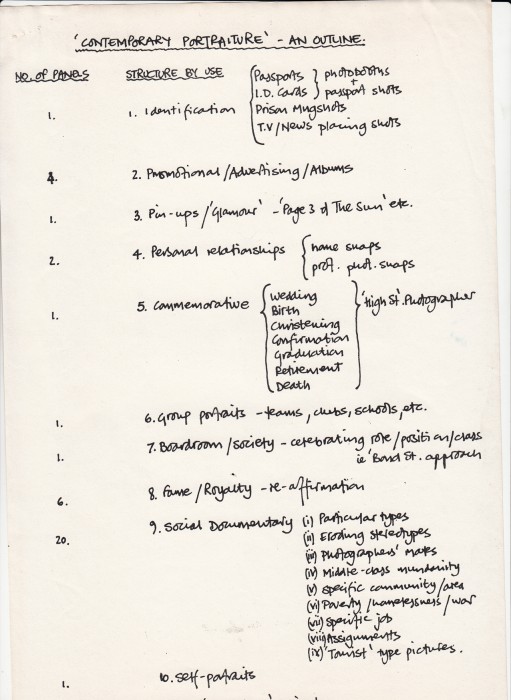 'CONTEMPORARY PORTRAITURE' - AN OUTLINE.
NO. OF PANELS STRUCTURE BY USE
1. 1. Identification
Passports
I.D. Cards
photobooths
+
passport shots
Prison Mugshots
T.V/News placing shots
4. 2. Promotional/Advertising/Albums
1. 3. Pin-ups/'Glamour' - 'Page 3 of The Sun' etc.
2. 4. Personal relationships
home snaps
prof. phot. snaps
1. 5. Commemorative
Wedding
Birth
Christening
Confirmation
Graduation
Retirement
Death
'High St'. Photographer
1. 6. Group portraits - teams, clubs, schools, etc.
1. 7. Boardroom/society - celebrating role/position/class
ie 'Bond St. approach
6. 8. Fame/Royalty - re-affirmation
20. 9. Social Documentary (i) Particular types
(ii) Eroding stereotypes
(iii) Photographers' mates
(iv) Middle-class mundanity
(v) specific community/area
(vi) Poverty/homelessness/war
(vii) specific job
(viii) Assignments
(ix) 'Tourist' type pictures.
1. 10. Self-portraits